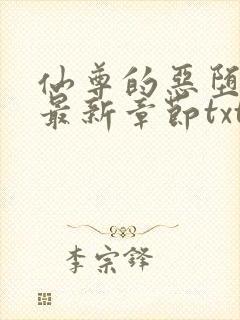 仙尊的恶堕
最新章节txt
李宗铎